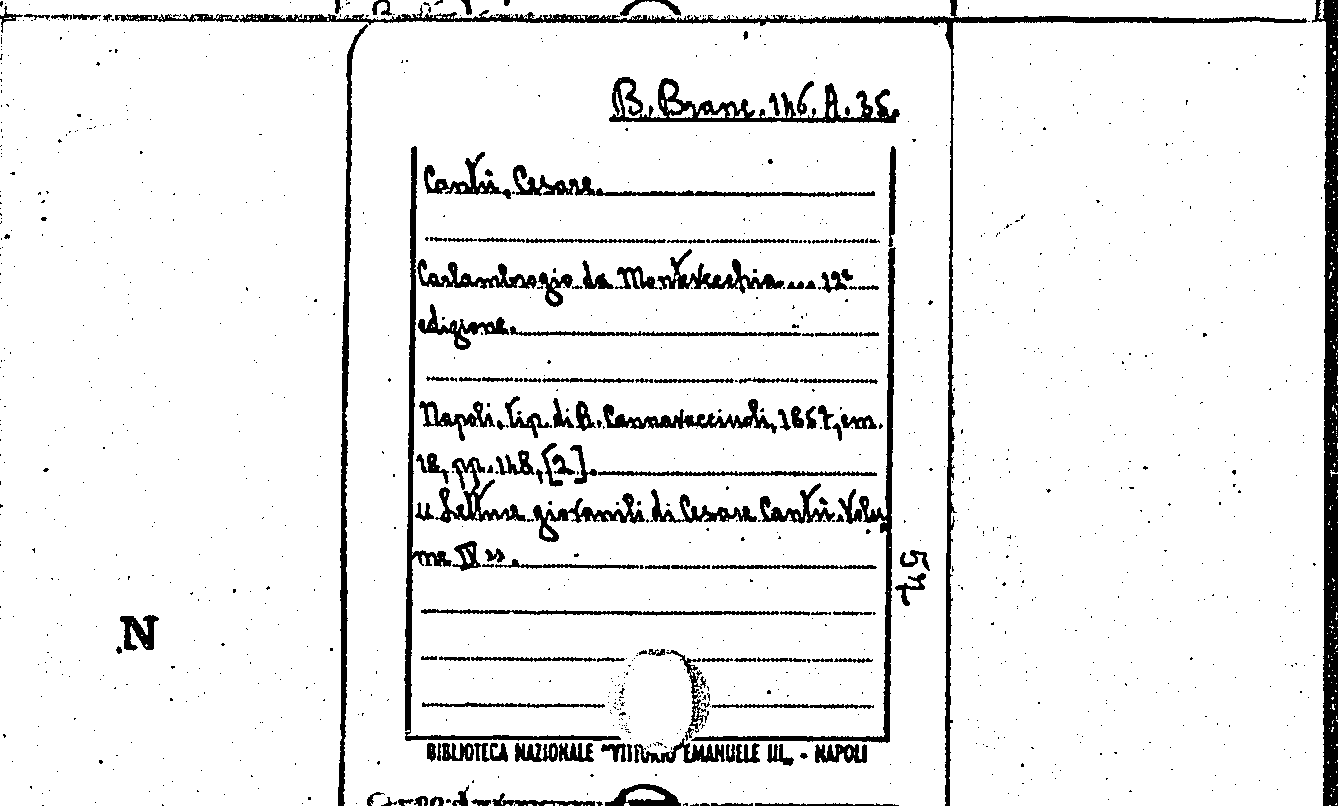 B. Branc. 146. A. 35.
Cantù, Cesare.
Carlambrogio da Montevecchia.... 12ª
edizione.
Napoli, tip. di B. Cannavacciuoli, 1857, cm.
18, pp. 148, [2].
« Letture giovanili di Cesare Cantù. Volu
me IV ».
57
N
BIBLIOTECA NAZIONALE "VITTORIO EMANUELE III„ - NAPOLI